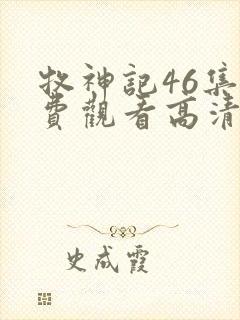 牧神記46集
費觀看高清
史成霞